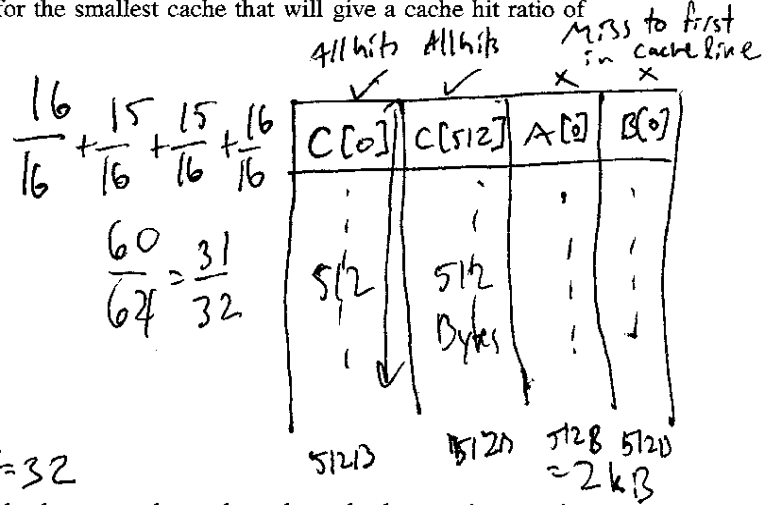 for the smallest cache that will give a cache hit ratio of
All hits All hits Miss to first
in cache line
✓ ✓ x x
16/16 + 15/16 + 15/16 + 16/16
C[0] C[512] A[0] B[0]
60/64 = 31/32
512 512
Bytes
512B 512B 512B 512B
=32 =2kB